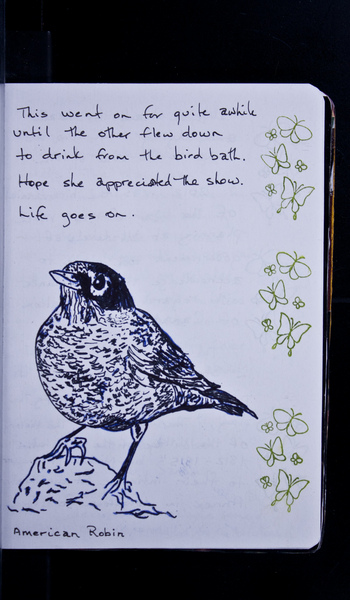 This went on for quite awhile
until the other flew down
to drink from the bird bath.
Hope she appreciated the show.
Life goes on.
American Robin